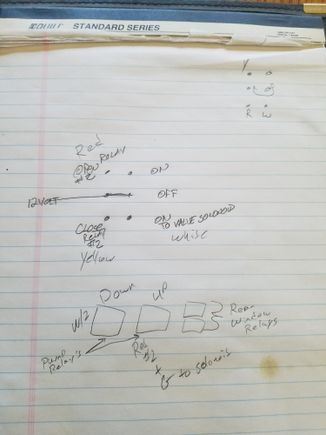 STANDARD SERIES
Y
R W
Red
OPEN RELAY
#2
ON
12 VOLT
OFF
CLOSE
Relay
#2
ON
TO VALVE SOLONOID
White
Yellow
Down
UP
Rear
Window
Relays
Pump
Relay's
Rel
#1
to solonois